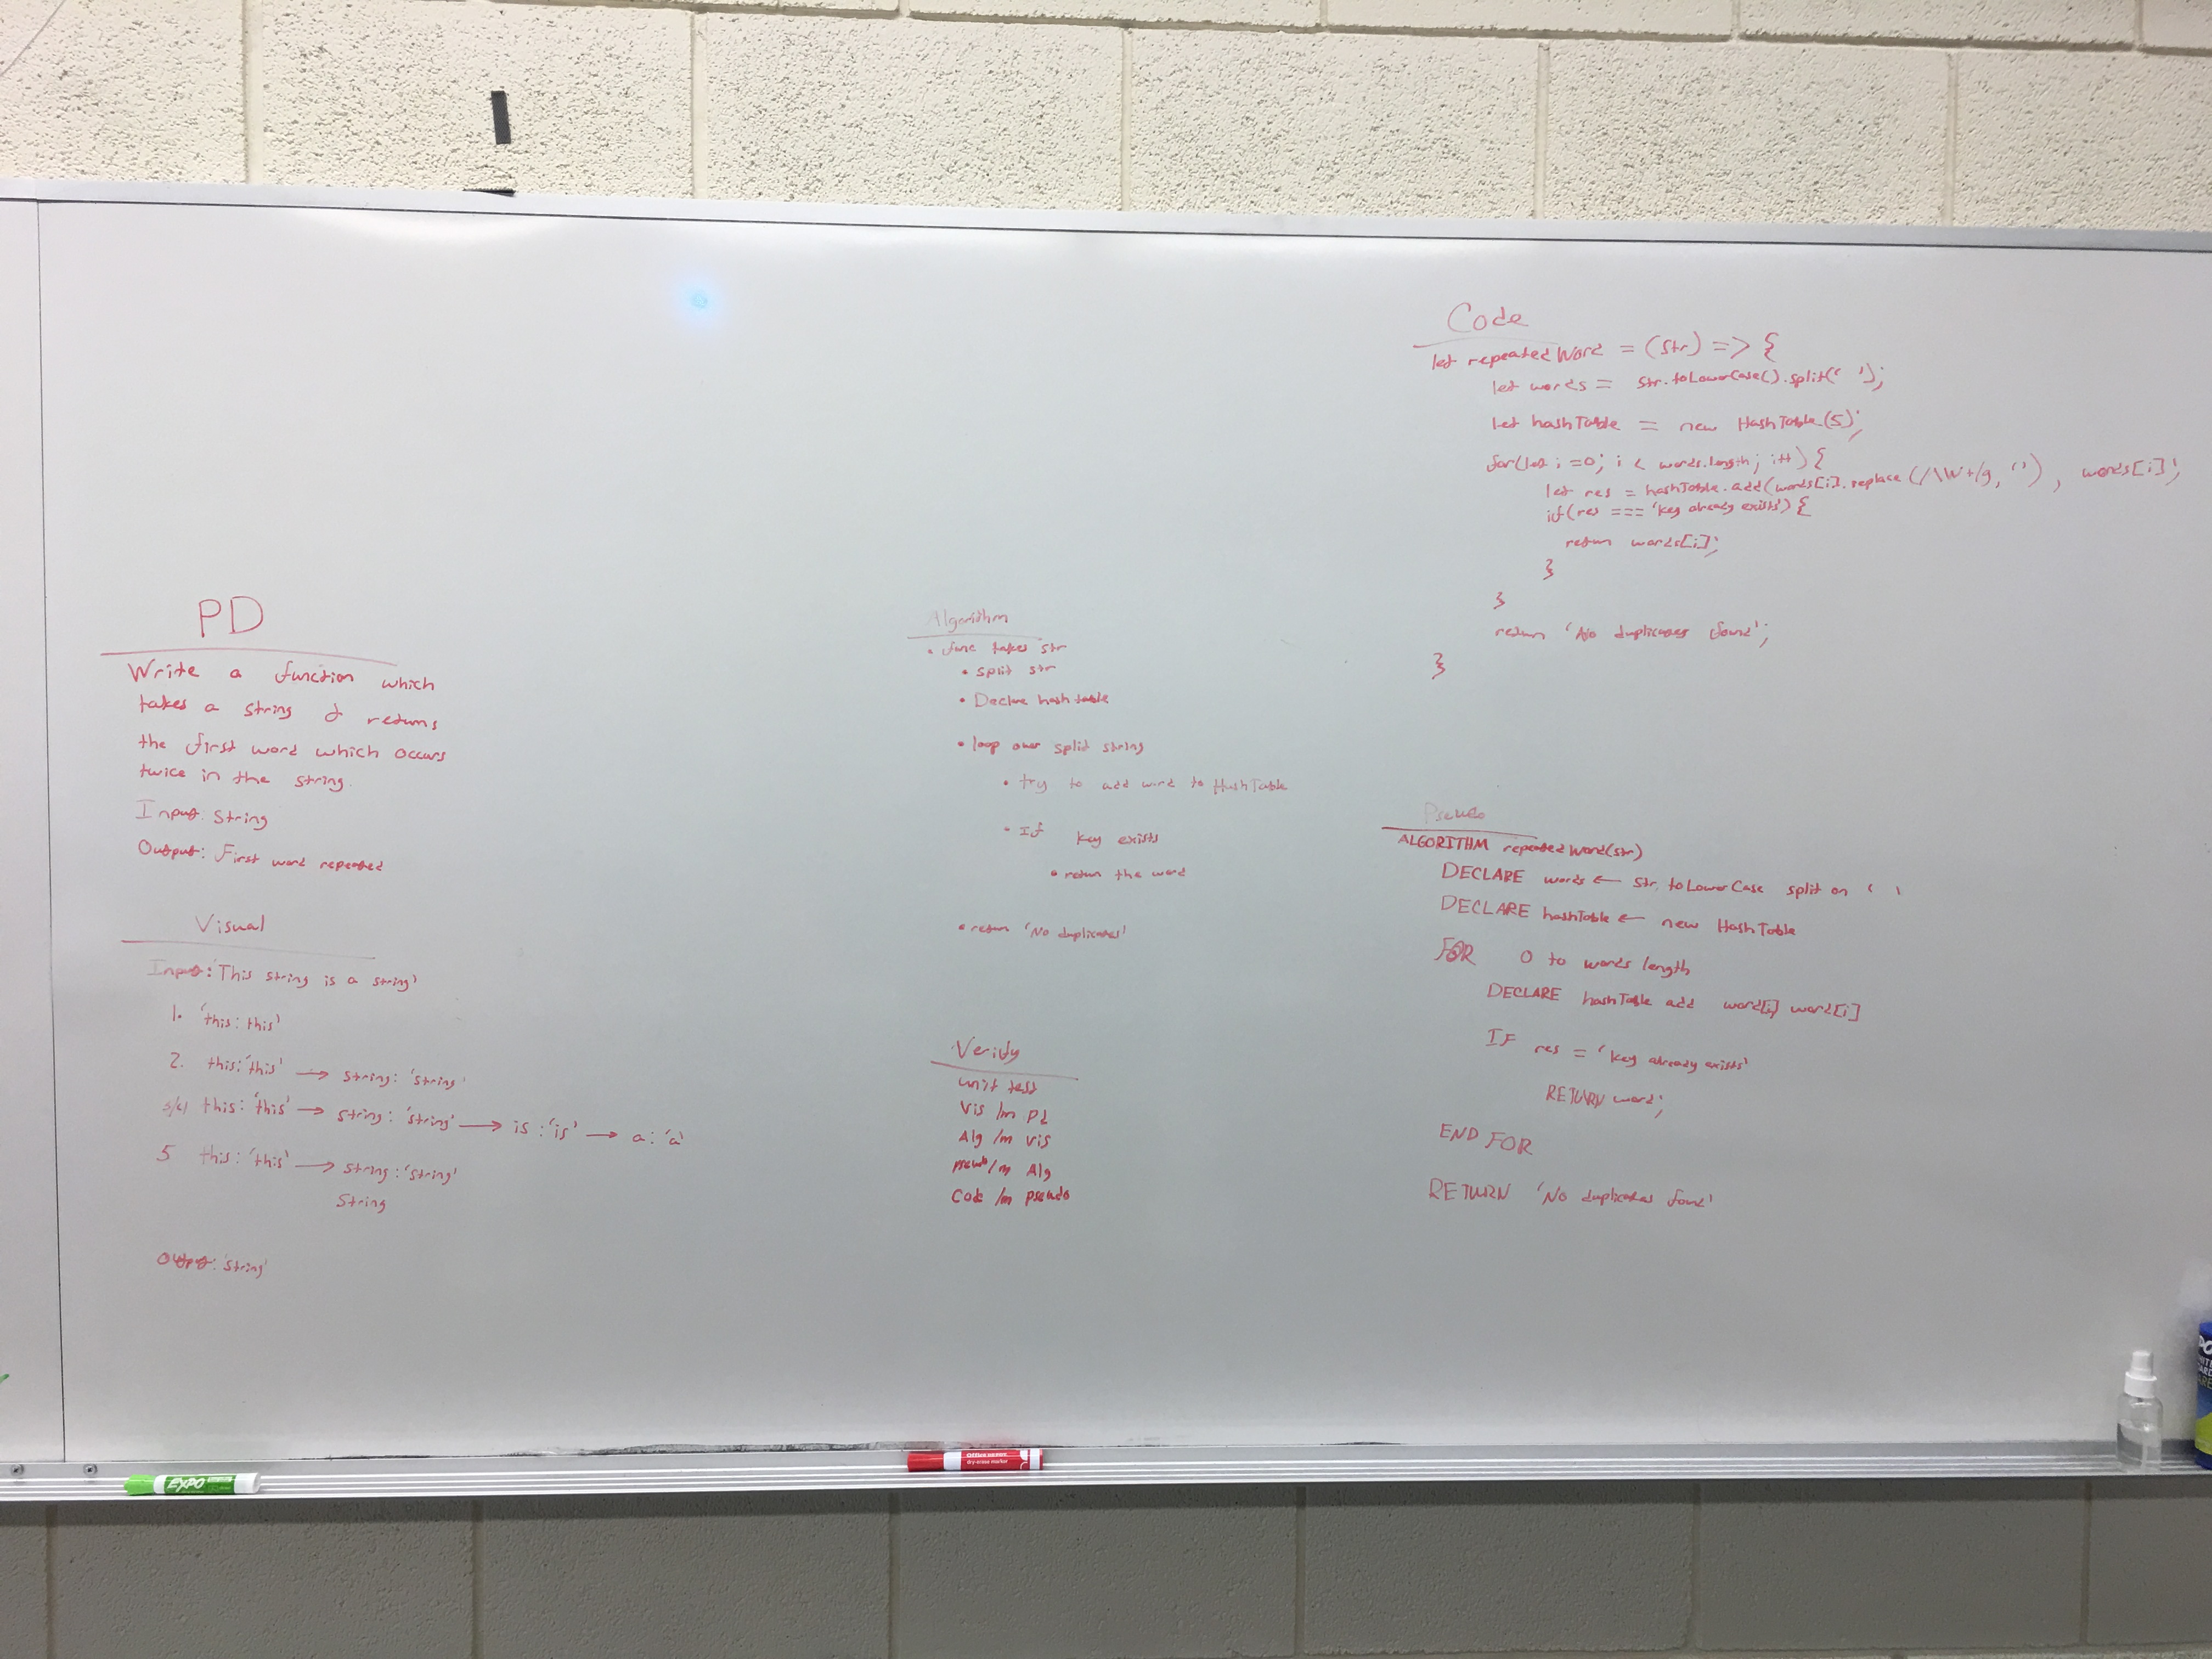 PD
Write a function which
takes a string & returns
the first word which occurs
twice in the string.
Input: String
Output: First word repeated
Visual
Input: 'This string is a string'
1. 'this: this'
2. this: 'this' → string: 'string'
3/4 this: 'this' → string: 'string' → is: 'is' → a: 'a'
5 this: 'this' → string: 'string'
String
Output: 'string'
Algorithm
• func takes str
• split str
• Declare hash table
• loop over split string
• try to add word to HashTable
• If key exists
• return the word
• return 'No duplicates'
Verify
unit test
Vis /m PD
Alg /m vis
pseudo /m Alg
Code /m pseudo
Code
let repeatedWord = (str) => {
let words = str.toLowerCase().split(' ');
let hashTable = new HashTable(5);
for(let i = 0; i < words.length; i++) {
let res = hashTable.add(words[i].replace(/\W+/g, ''), words[i];
if(res === 'key already exists') {
return words[i];
}
}
return 'No duplicates found';
}
Pseudo
ALGORITHM repeatedWord(str)
DECLARE words ← str. toLowerCase split on ' '
DECLARE hashTable ← new HashTable
FOR 0 to words length
DECLARE hashTable add word[i] word[i]
IF res = 'key already exists'
RETURN word;
END FOR
RETURN 'No duplicates found'
EXPO
Office DEPOT
dry-erase marker